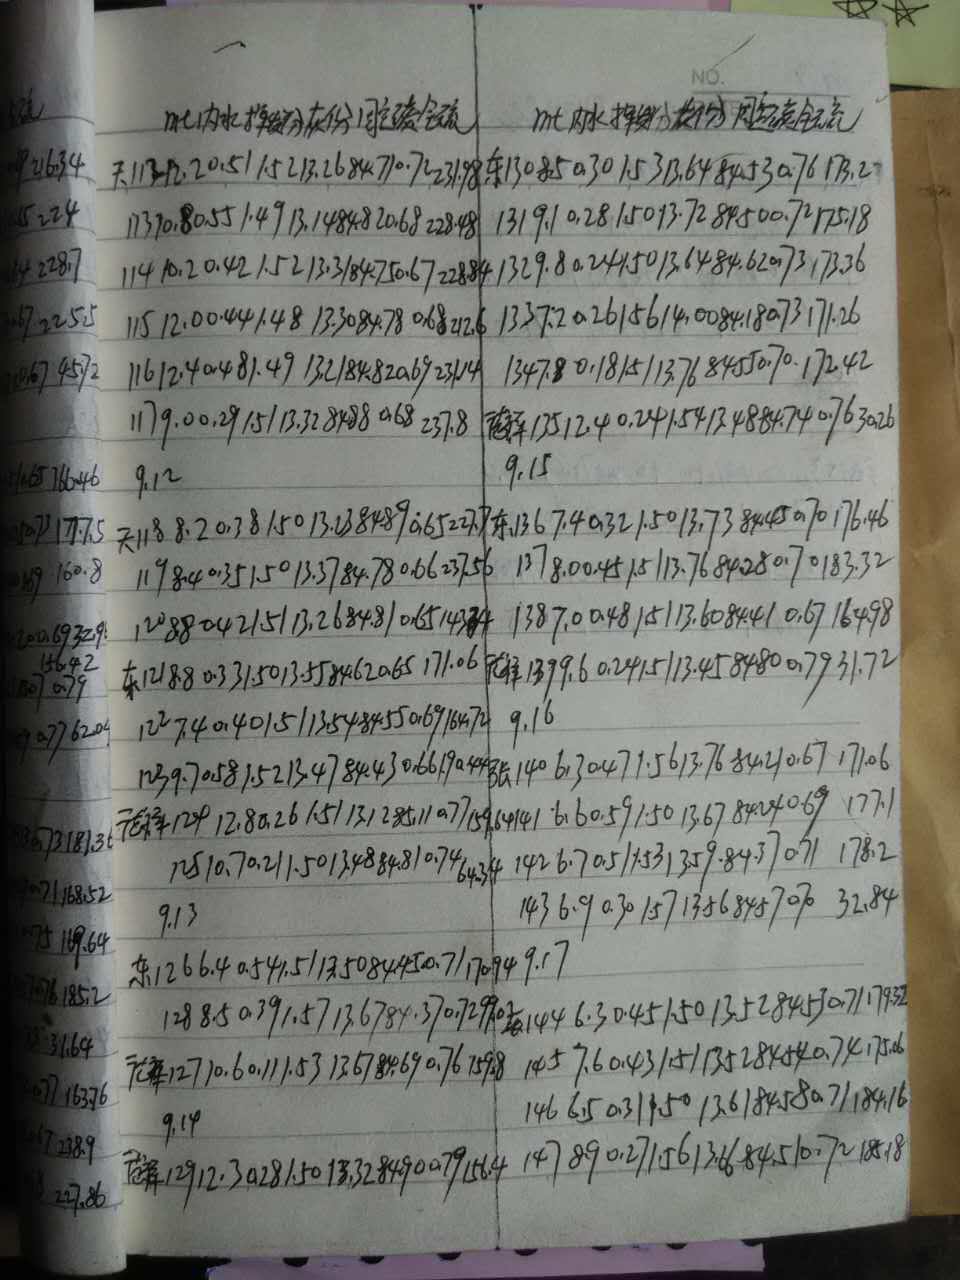 NO.
mt 内水 挥发分 灰份 固定碳 全硫
天113 12.2 0.51 1.52 13.26 84.71 0.72 231.98
113 10.8 0.55 1.49 13.14 84.82 0.68 228.48
114 10.2 0.42 1.52 13.31 84.75 0.67 228.84
115 12.0 0.44 1.48 13.30 84.78 0.68 212.6
116 12.4 0.48 1.49 13.21 84.82 0.69 231.14
117 9.0 0.29 1.51 13.32 84.88 0.68 237.8
9.12
天118 8.2 0.38 1.50 13.23 84.89 0.65 227.7
119 8.4 0.35 1.50 13.37 84.78 0.66 237.56
120 8.8 0.42 1.51 13.26 84.81 0.65
东121 8.8 0.33 1.50 13.55 84.62 0.65 171.06
122 7.4 0.40 1.51 13.54 84.55 0.69 164.72
123 9.7 0.58 1.52 13.47 84.43 0.66 190.44
124 12.8 0.26 1.51 13.12 85.11 0.77 159.64
125 10.7 0.21 1.50 13.48 84.81 0.74 64.34
9.13
东126 6.4 0.54 1.51 13.50 84.45 0.71 170.94
128 8.5 0.39 1.57 13.67 84.37 0.72
127 10.6 0.11 1.53 13.67 84.69 0.76 159.8
9.14
129 12.3 0.28 1.50 13.32 84.90 0.79 156.4
mt 内水 挥发分 灰份 固定碳 全硫
东130 8.5 0.30 1.53 13.64 84.53 0.76 173.2
131 9.1 0.28 1.50 13.72 84.50 0.72 175.18
132 9.8 0.24 1.50 13.64 84.62 0.73 173.36
133 7.2 0.26 1.56 14.00 84.18 0.73 171.26
134 7.8 0.18 1.51 13.76 84.55 0.70 172.42
135 12.4 0.24 1.54 13.48 84.74 0.76 30.26
9.15
东136 7.4 0.32 1.50 13.73 84.45 0.70 176.46
137 8.0 0.45 1.51 13.76 84.28 0.70 183.32
138 7.0 0.48 1.51 13.60 84.41 0.67 164.98
139 9.6 0.24 1.51 13.45 84.80 0.79 31.72
9.16
张140 6.3 0.47 1.56 13.76 84.21 0.67 171.06
141 6.6 0.59 1.50 13.67 84.24 0.69 177.1
142 6.7 0.51 1.53 13.59 84.37 0.71 178.2
143 6.9 0.30 1.57 13.56 84.57 0.70 32.84
9.17
144 6.3 0.45 1.50 13.52 84.53 0.71 179.32
145 7.6 0.43 1.51 13.52 84.54 0.74 175.06
146 6.5 0.31 1.50 13.61 84.58 0.71 184.16
147 8.9 0.27 1.56 13.66 84.51 0.72 185.18